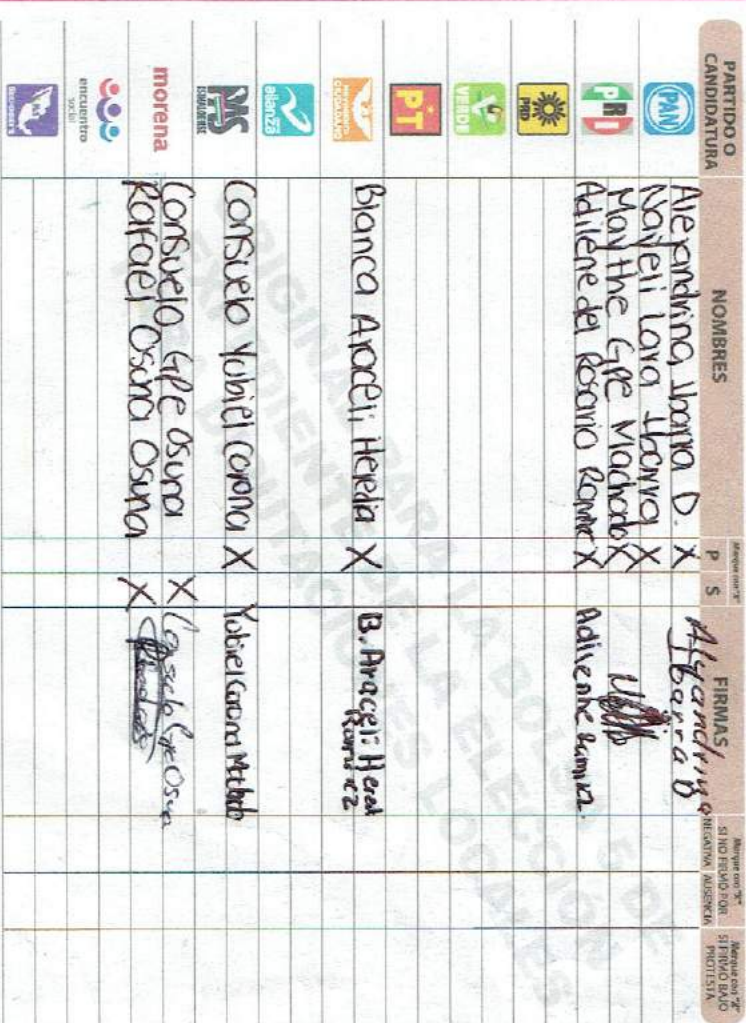 PARTIDO O CANDIDATURA
NOMBRES
Marque con "X"
P S
FIRMAS
Marque con "X" SI NO FIRMÓ POR
NEGATIVA AUSENCIA
Marque con "X" SI FIRMÓ BAJO PROTESTA
PAN
Alejandrina Ibarra D. X Alejandrina Ibarra D
Nayeli Lara Ibarra X
PRI
Maythe Gpe Machado X
Adilene del Rosario X Adilene
PRD
VERDE
PT
MOVIMIENTO CIUDADANO
Blanca Araceli Heredia X B. Araceli
alianza
PAS
SINALOENSE
Consuelo Yubiel Corona X Yubiel Corona
morena
Consuelo Gpe Osuna X Consuelo Gpe Osuna
Rafael Osuna Osuna X
encuentro social
ORIGINAL PARA LA BOLSA 5 DE
EXPEDIENTE DE LA ELECCIÓN
PARA DIPUTACIONES LOCALES